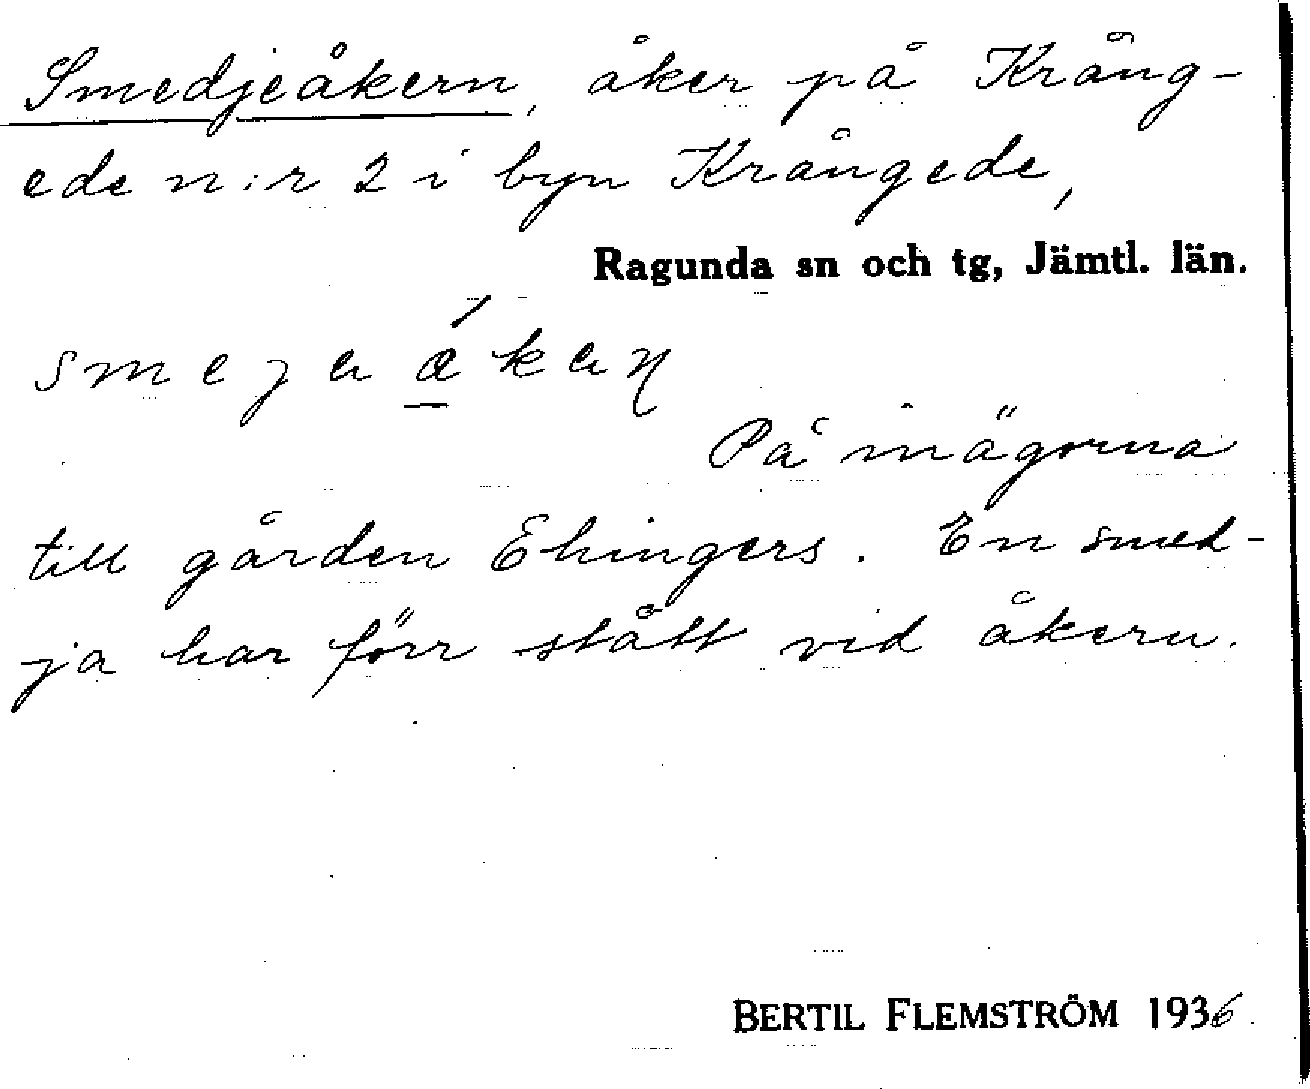 Smedjeåkern, åker på Kräng-
ede n:r 2 i byn Krångede,
Ragunda sn och tg, Jämtl. län.
På inägorna
till gården Ehingers. En smed-
ja har förr stått vid åkern.
BERTIL FLEMSTRÖM 1936.